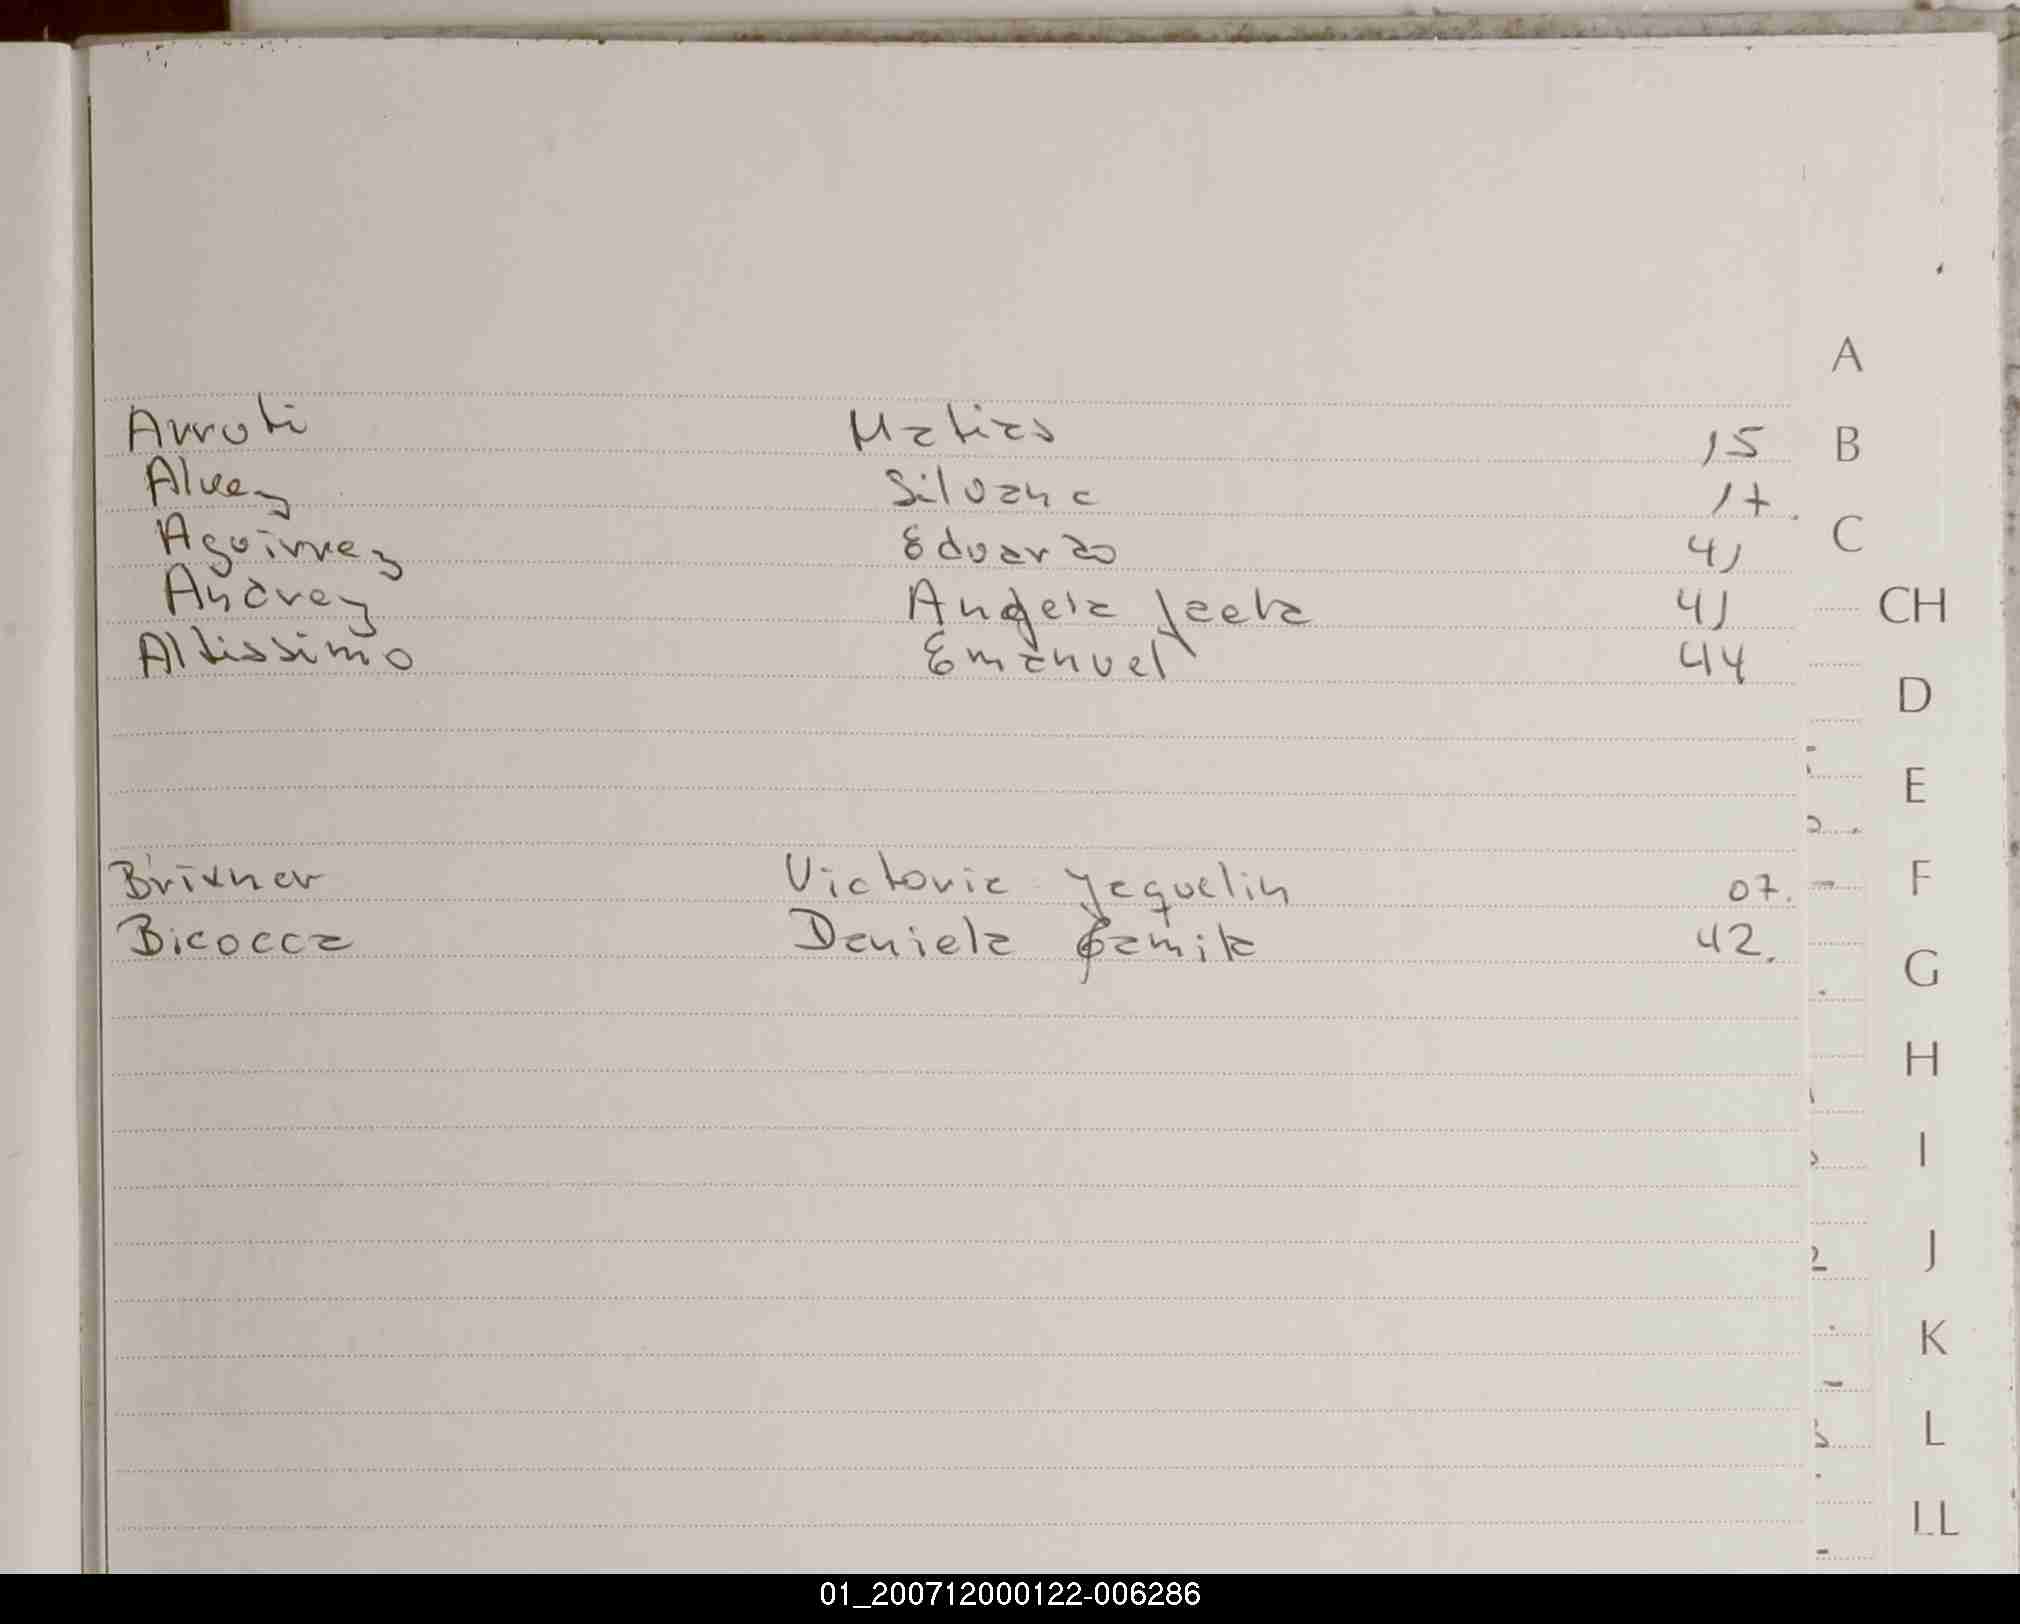 A
Arroti Matias 15
B
Alvez Silvana 17.
C
Aguirrez Eduardo 41
Andrez Angela 41
CH
Altissimo Emanuel 44
D
E
Brixner Victoria Jaquelin 07.
F
Bicocca Daniela Pamila 42.
G
H
I
J
K
L
LL
01_200712000122-006286